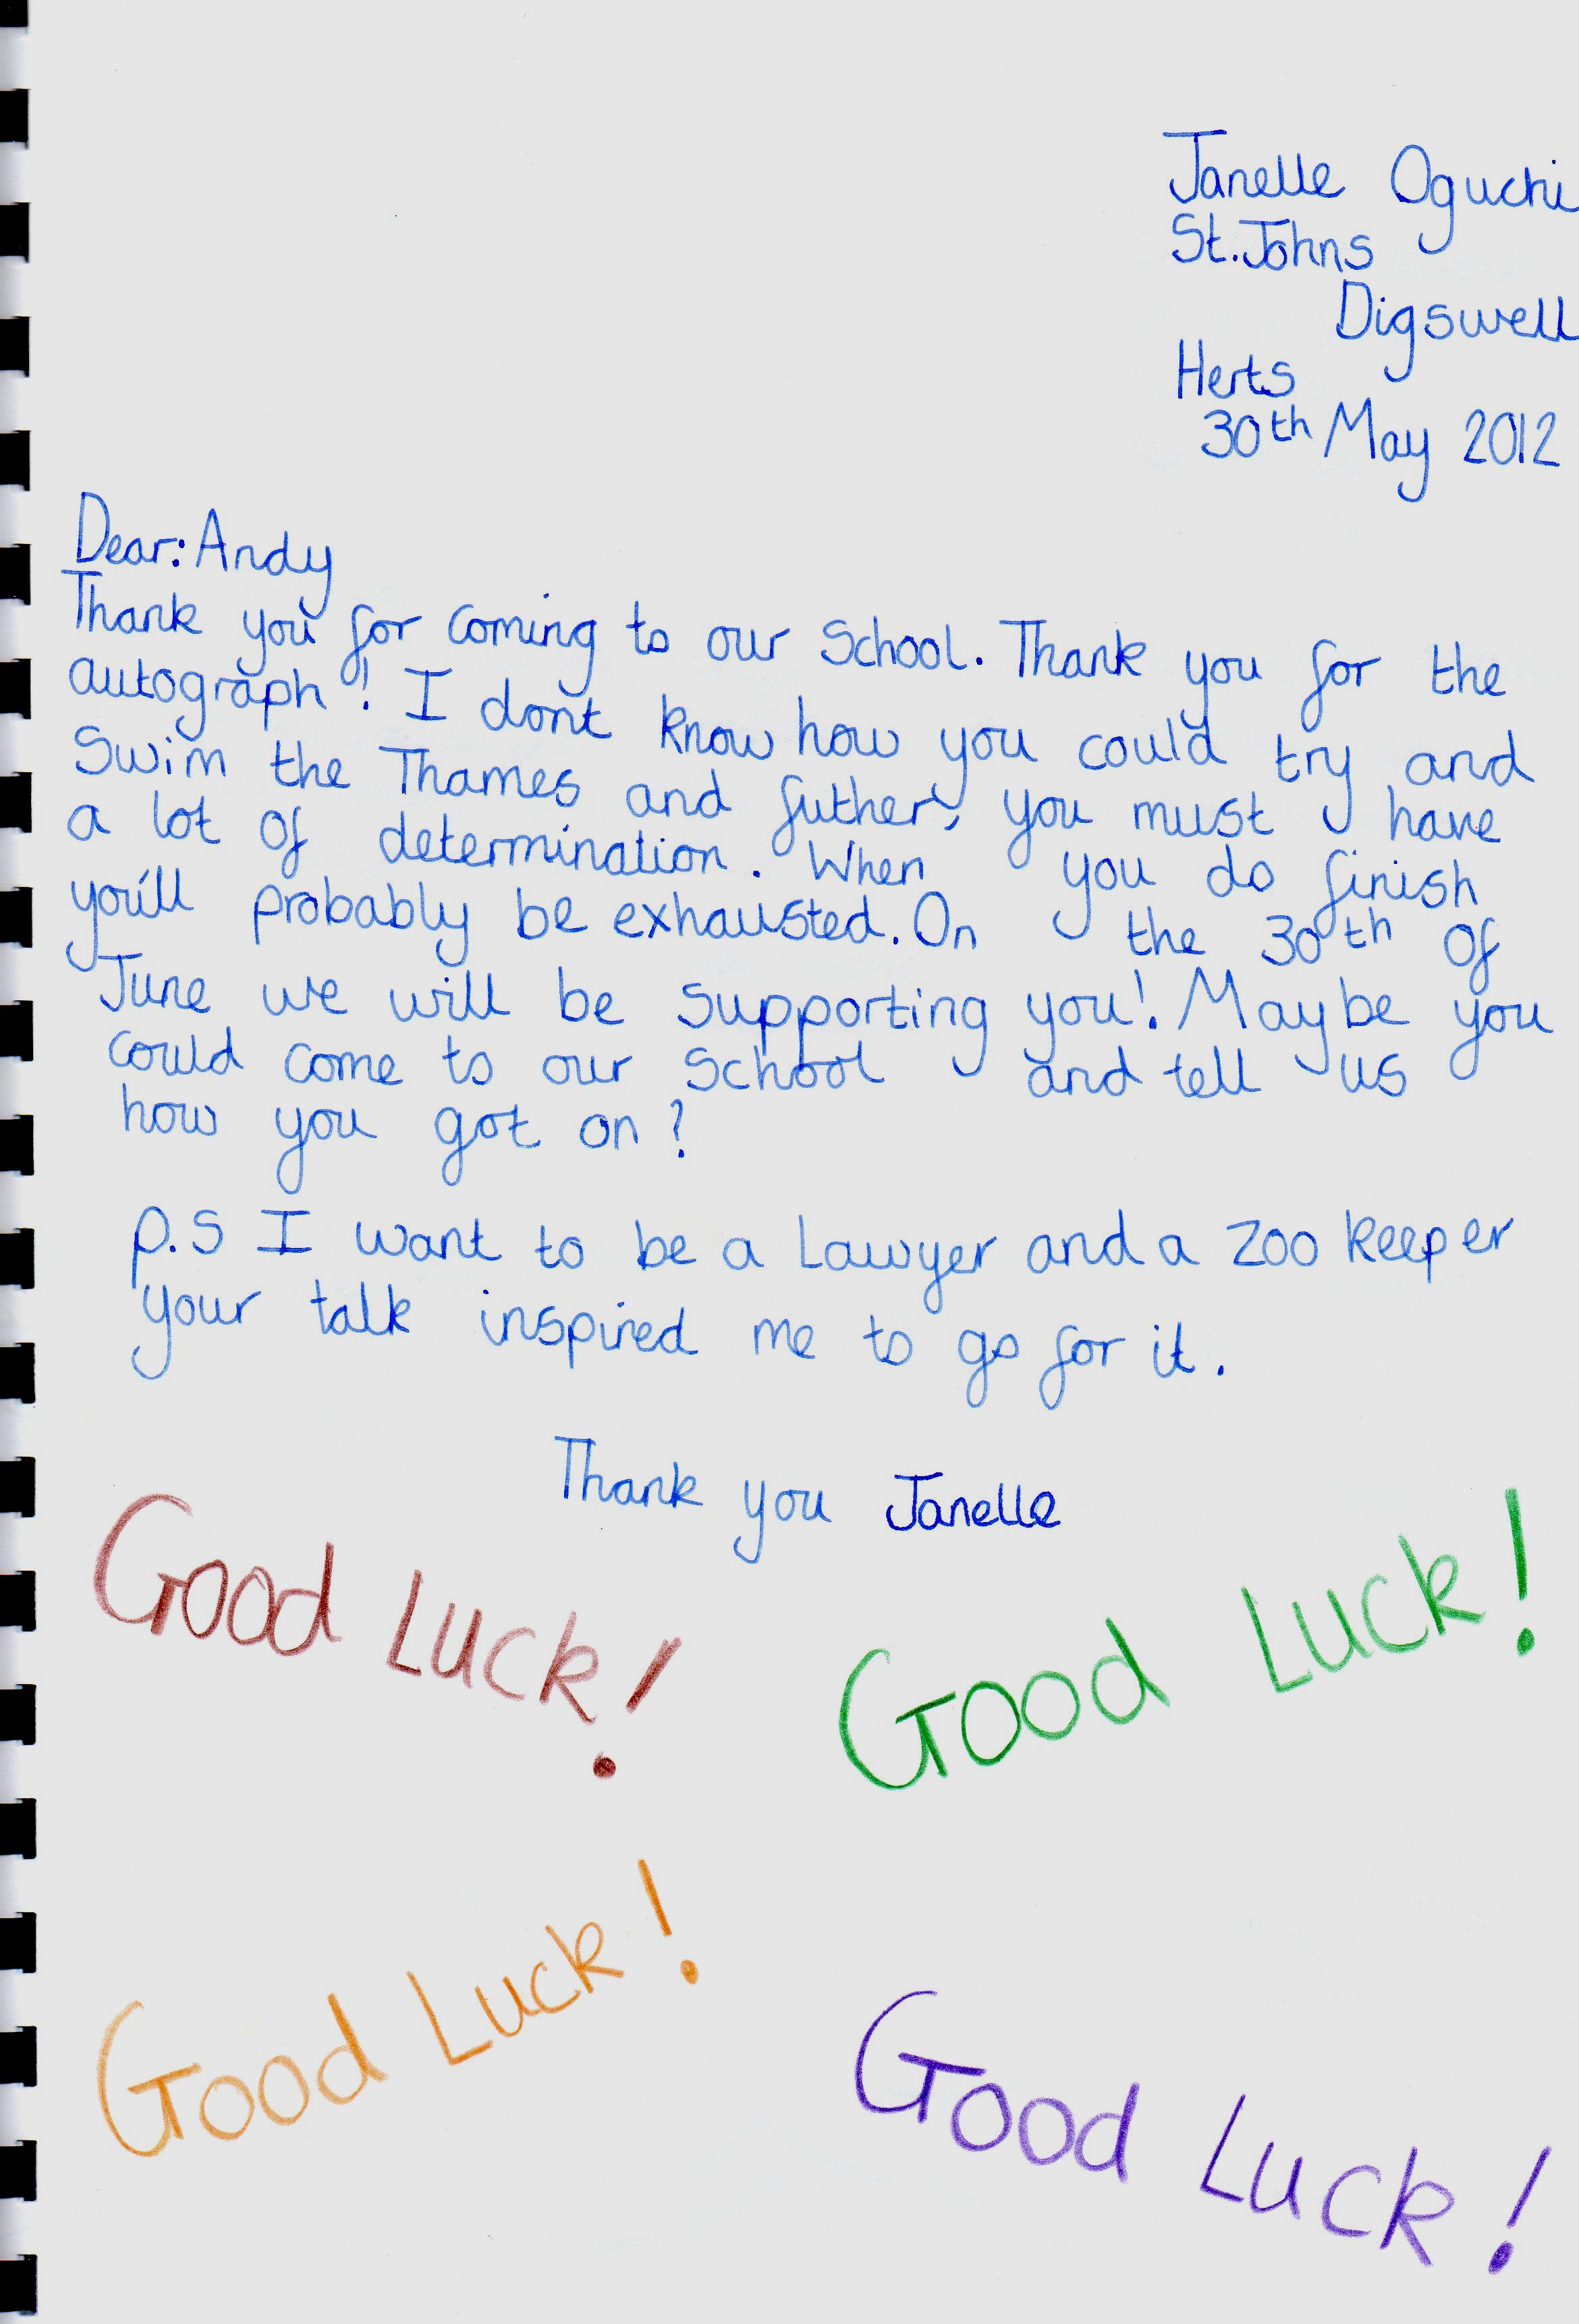 Janelle Oguchi
St.Johns
Digswell
Herts
30th May 2012
Dear: Andy
Thank you for coming to our School. Thank you for the
autograph! I dont know how you could try and
Swim the Thames and futher, you must have
a lot of determination. When you do finish
you'll probably be exhausted. On the 30th of
June we will be supporting you! Maybe you
could come to our School and tell us
how you got on?
P.S I want to be a Lawyer and a Zoo keeper
your talk inspired me to go for it.
Thank you Janelle
Good Luck!
Good Luck!
Good Luck!
Good Luck!